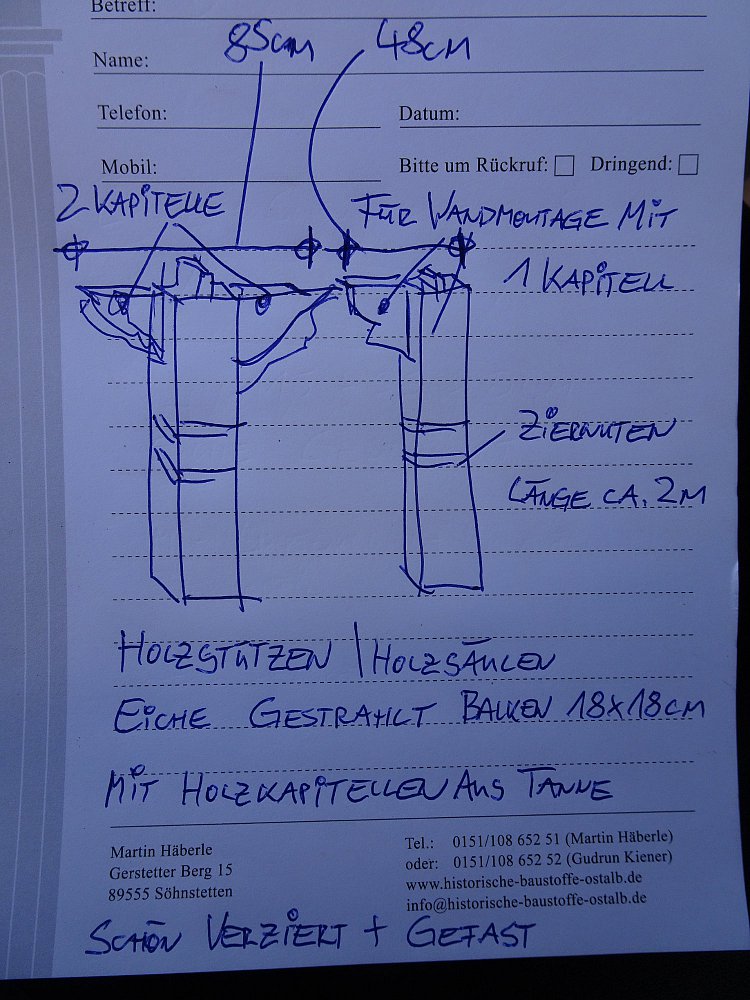 Betreff:
85cm 48cm
Name:
Telefon: Datum:
Mobil: Bitte um Rückruf: Dringend:
2 KAPITELLE FÜR WANDMONTAGE MIT
1 KAPITELL
ZIERNUTEN
LÄNGE CA. 2M
HOLZSTÜTZEN | HOLZSÄULEN
EICHE GESTRAHLT BALKEN 18X18CM
MIT HOLZKAPITELLEN AUS TANNE
Martin Häberle
Gerstetter Berg 15
89555 Söhnstetten
Tel.: 0151/108 652 51 (Martin Häberle)
oder: 0151/108 652 52 (Gudrun Kiener)
www.historische-baustoffe-ostalb.de
info@historische-baustoffe-ostalb.de
SCHÖN VERZIERT + GEFAST